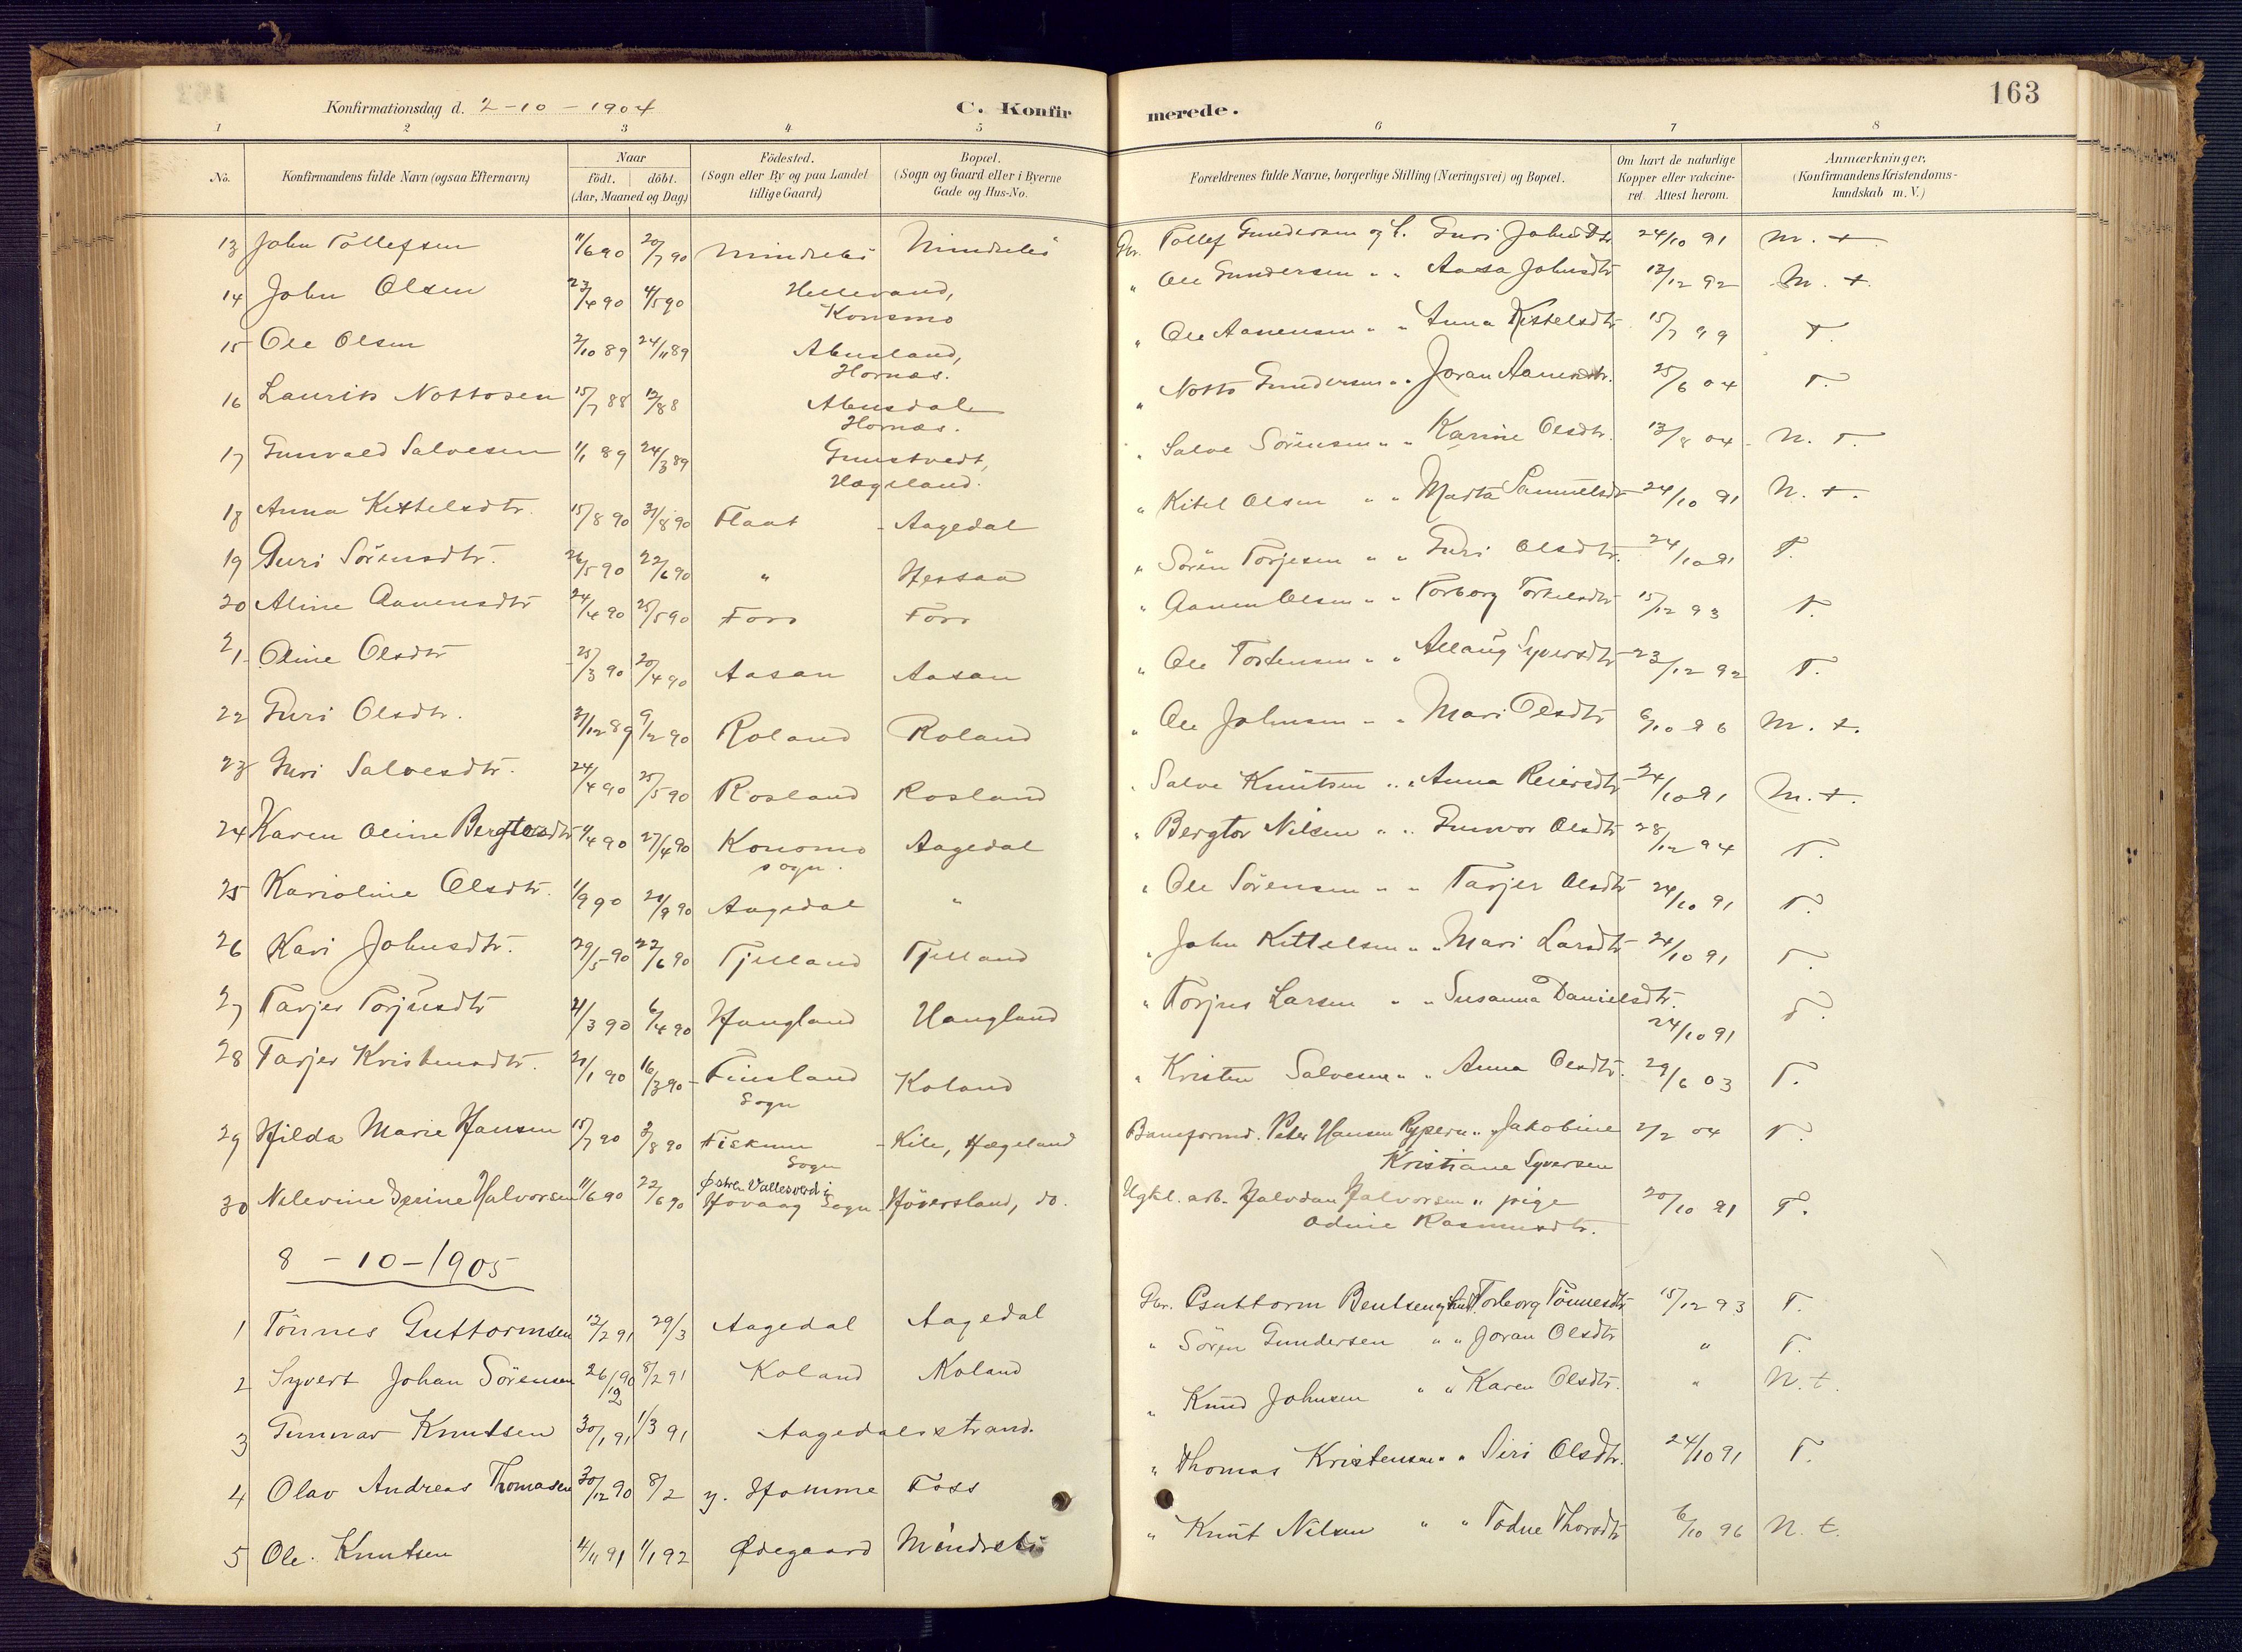 163
Konfirmationsdag d. 2-10-1904 C. Konfirmerede.
1 2 3 4 5 6 7 8
No. Konfirmandens fulde Navn (ogsaa Efternavn) Naar Födt. döbt. (Aar, Maaned og Dag) Födested. (Sogn eller By og paa Landet tillige Gaard) Bopæl. (Sogn og Gaard eller i Byerne Gade og Hus-No. Forældrenes fulde Navne, borgerlige Stilling (Næringsvei) og Bopæl. Om havt de naturlige Kopper eller vakcineret. Attest herom. Anmærkninger. (Konfirmandens Kristendomskundskab m. V.)
13 John Tollefsen 11/6 90 20/7 90 Mindrebö Mindrebö Gbr. Tollef Gundersen og h. Guri Johnsdtr 24/10 91 M. +
14 John Olsen 23/4 90 4/5 90 Hellevand, Konsmo " Ole Gundersen " " Aasa Johnsdtr 13/12 92 M. +.
15 Ole Olsen 2/10 89 24/11 89 Abusland, Hornæs. " Ole Aanensen " " Anna Kittelsdtr 15/7 99 T.
16 Laurits Nottosen 15/7 88 12/8 88 Abusdal Hornæs. " Notto Gundersen " " Joran Aanensdtr. 25/6 04 T.
17 Gunvald Salvesen 1/1 89 24/3 89 Gunstvedt, Hægeland. " Salve Sörensen " " Karine Olsdtr. 13/8 04 N. T.
18 Anna Kittelsdtr. 15/8 90 31/8 90 Flaat - Aagedal " Kitel Olsen " " Marta Samuelsdtr 24/10 91 N. +.
19 Guri Sörensdtr. 26/5 90 22/6 90 " Hessaa " Sören Torjesen " " Guri Olsdtr. 24/10 91 T.
20 Aline Aanensdtr 24/4 90 25/5 90 Foss Foss " Aanen Olsen " " Torborg Torkelsdtr 15/12 93 T.
21 Oline Olsdtr 25/3 90 20/4 90 Aasan Aasan " Ole Tostensen " " Allaug Syversdtr 23/12 92 T.
22 Guri Olsdtr. 31/12 89 9/2 90 Roland Roland " Ole Johnsen " " Mari Olsdtr 6/10 96 M. +.
23 Guri Salvesdtr. 24/4 90 25/5 90 Rosland Rosland " Salve Knutsen " " Anna Reiersdtr 24/10 91 M. +.
24 Karen Oline Bergtorsdtr 4/4 90 27/4 90 Konsmo sogn. Aagedal " Bergtor Nilsen " " Gunvor Olsdtr 28/12 94 T.
25 Karioline Olsdtr. 1/9 90 21/9 90 Aagedal " " Ole Sörensen " " Tarjer Olsdtr 24/10 91 T.
26 Kari Johnsdtr. 29/5 90 22/6 90 Tjelland Tjelland " John Kittelsen " " Mari Larsdtr 24/10 91 T.
27 Tarjer Torjusdtr 21/3 90 6/4 90 Haugland Haugland " Torjus Larsen " " Susanna Danielsdtr. 24/10 91 T.
28 Tarjer Kristensdtr. 21/1 90 16/3 90 - Finsland Sogn Koland " Kristen Salvesen " " Anna Olsdtr. 29/6 03 T.
29 Hilda Marie Hansen 15/7 90 3/8 90 Fiskum Sogn - Kile, Hægeland Baneformd. Peter Hansen Rypern " " Jakobine Kristiane Syversen 2/2 04 T.
30 Nilevine Serine Halvorsen 11/6 90 22/6 90 Østre Vallesverd i Hovaag Sogn - Höversland, do. Ugkl. arb. Halvdan Halvorsen " pige Odine Rasmusdtr. 20/10 91 T.
8-10-1905
1 Tönnes Guttormsen 12/2 91 29/3 Aagedal Aagedal Gbr. Guttorm Bentsen og hust. Torborg Tönnesdtr 15/12 93 T.
2 Syvert Johan Sörensen 26/12 90 8/2 91 Koland Koland " Sören Gundersen " " Joran Olsdtr " T.
3 Gunnar Knutsen 30/1 91 1/3 91 Aagedalsstrand. " Knud Johnsen " " Karen Olsdtr. " N. t.
4 Olav Andreas Thomasen 30/12 90 8/2 y. Homme Foss " Thomas Kristensen " " Siri Olsdtr. 24/10 91 T.
5 Ole Knutsen 4/11 91 1/1 92 Ødegaard Mindrebö " Knut Nilsen " " Todne Thorsdtr 6/10 96 N. t.